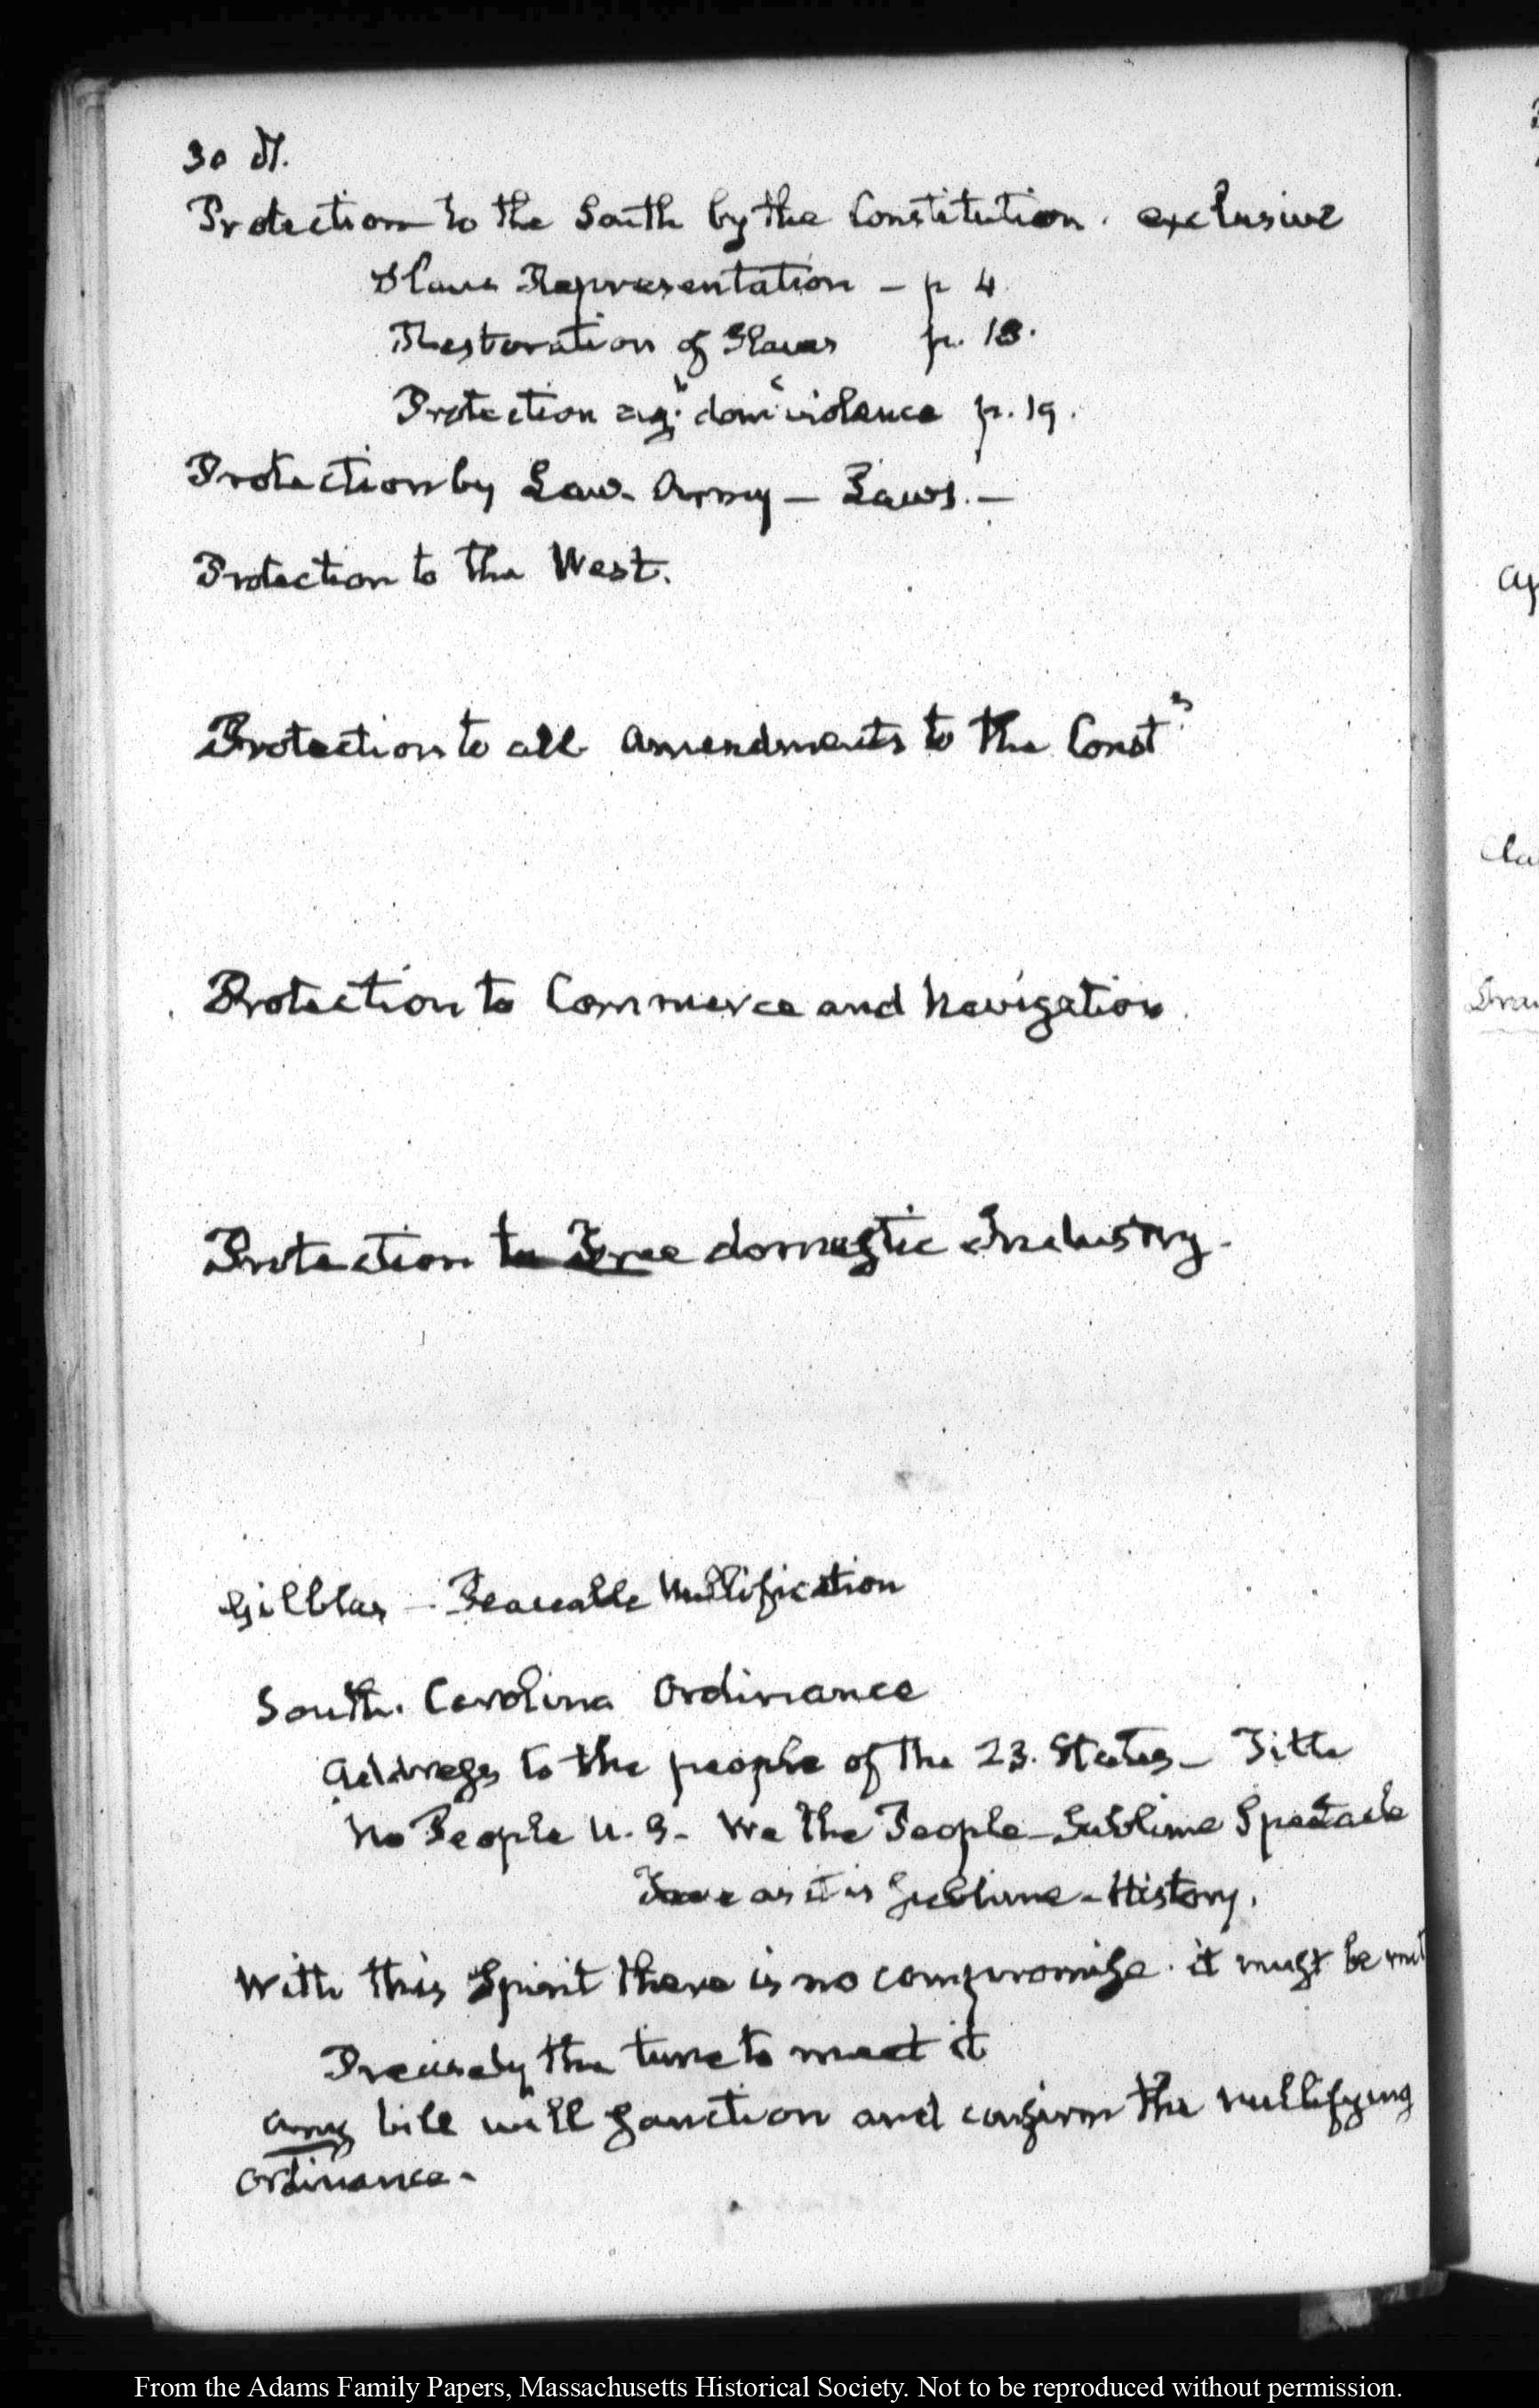 30
Protection to the South by the Constitution. exclusive
Slave Representation – p 4
Restoration of Slaves p. 18.
Protection agt domc violence p. 19.
Protection by Law. Army – Laws. –
Protection to the West.
Protection to all amendments to the Constn
Protection to Commerce and Navigation.
Protection to Free domestic Industry.
Gilblas – Peaceable Nullification
South Carolina Ordinance
Address to the people of the 23. States – Title
No People U.S. We the People – Sublime Spectacle
as it is Sublime – History.
With this Spirit there is no compromise. it must be met
Precisely the time to meet it
any bill will sanction and confirm the nullifying
Ordinance.
Cla
From the Adams Family Papers, Massachusetts Historical Society. Not to be reproduced without permission.